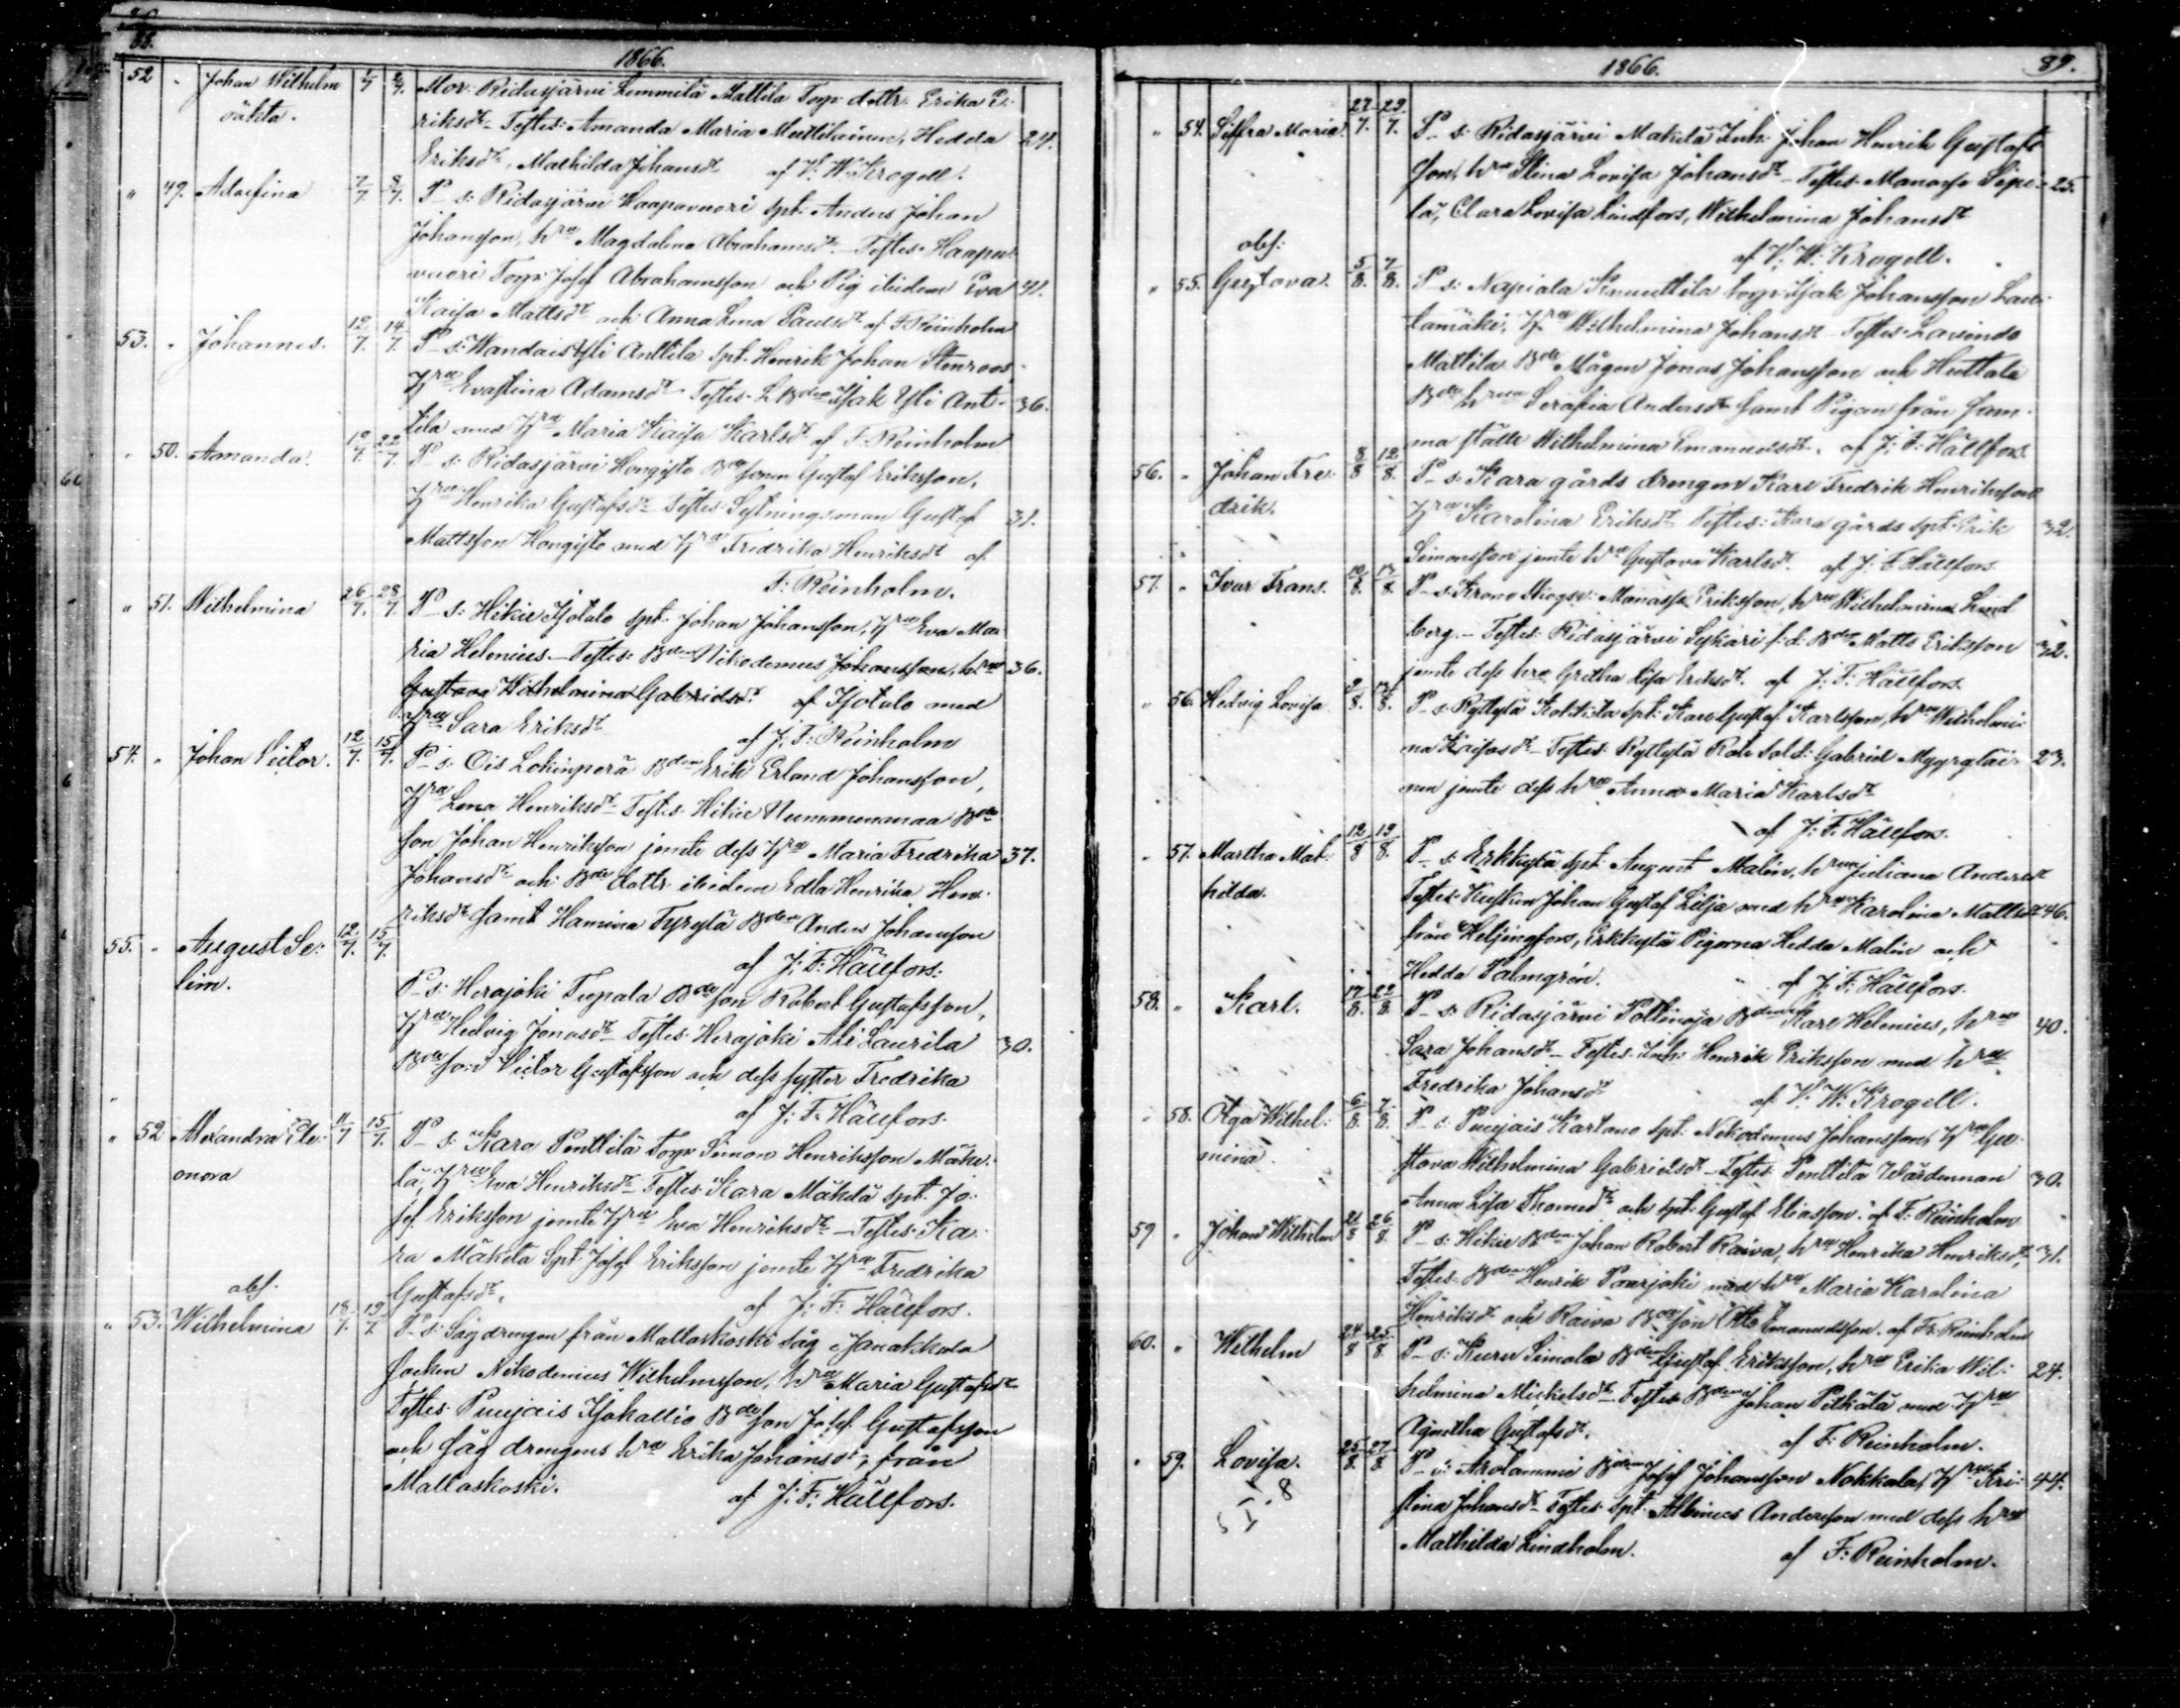 88.
1866.
52 " Johan Wilhelm 1/7 2/7. Mor: Ridasjärvi Lemmilä Mattila Torp: dottr. Erika E-
oäkta. riksdr Testes: Amanda Maria Mettiläinen, Hedda 24.
Eriksdr, Mathilda Johansdr af V: W: Krogell.
" 49. Adolfina 7/7 8/7. P_ s: Ridasjärvi Haapavuori spt: Anders Johan
Johansson, hru Magdalena Abrahamsdr Testes: Haapa-
vuori Torp: Josef Abrahamsson och Pig ibidem Eva 41.
Kaisa Mattsdr och Anna Lena Paulsdr af F: Reinholm
53. " Johannes. 12/7. 14/7. P_ s: Wandais Yli Anttila spt. Henrik Johan Stenroos
Hru Evastina Adamsdr Testes: Bden Isak Yli Ant- 36.
tila med Hru Maria Kaisa Karlsdr af F: Reinholm
" 50. Amanda. 12/7. 22/7. P_ s: Ridasjärvi Hongisto Bdesonen Gustaf Eriksson,
Hru Henrika Gustafsdr Testes: Sytningsman Gustaf 31.
Mattsson Hongisto med Hru Fredrika Henriksdr af
F: Reinholm.
" 51. Wilhelmina 26/7. 28/7. P_ s: Hikiä Isotalo spt: Johan Johansson, Hru Eva Ma-
ria Helenius_ Testes: Bden Nikodemus Johansson, hru 36.
Gustava Wilhelmina Gabrielsdr af Isotalo med
Hru Sara Eriksdr af J: F: Reinholm
54. " Johan Victor. 12/7. 15/7. P_ s: Ois Lokinperä Bden Erik Erland Johansson,
Hru Lena Henriksdr Testes: Hikiä Nummenmaa Bde
son Johan Henriksson jemte dess Hru Maria Fredrika 37.
Johansdr och Bde dottr. ibidem Edla Henrika Hen-
riksdr samt Hamina Tyrylä Bden Anders Johansson
55. " August Se- 12/7. 15/7. af J: F: Hällfors.
lim. P_ s: Herajoki Tupala Bdeson Robert Gustafsson,
Hru Hedvig Jonasdr Testes: Herajoki Ali Laurila 30.
Bdeson Victor Gustafsson och dess syster Fredrika
af J: F: Hällfors.
" 52 Alexandra Ele- 11/7 15/7. P_ s: Kara Penttilä Torp: Simon Henriksson Mäke-
onora lä, Hru Eva Henriksdr Testes: Kara Mäkelä spt. Jo-
sef Eriksson jemte Hru Eva Henriksdr_ Testes: Ka-
ra Mäkelä Spt: Josef Eriksson jemte Hru Fredrika
abs. Gustafsdr. af J: F: Hällfors.
" 53. Wilhelmina 18/7. 19/7 P_ s: Sågdrengen från Mallaskoski såg i Janakkala
socken Nikodemus Wilhelmsson, hru Maria Gustafsdr
Testes: Puujais Isokallio Bdeson Josef Gustafsson
och sågdrengens hru Erika Johansdr, från
Mallaskoski. af J: F: Hällfors.
1866. 89.
" 54. Siffra Maria 27/7. 29/7. P_ s: Ridasjärvi Mäkelä Inh: Johan Henrik Gustafs-
son, hru Stina Lovisa Johansdr_ Testes: Manasse Sipi- 25.
lä, Clara Lovisa Lindfors, Wilhelmina Johansdr
abs: af V: W: Krogell.
" 55. Gustava. 5/8. 7/8. P_ s: Napiala Knuuttila torp: Isak Johansson Lau-
tamäki, Hru Wilhelmina Johansdr Testes: Lavinto
Mattila Bde Mågen Jonas Johansson och Huttala
Bde hrun Serafia Andersdr samt Pigan från sam-
ma ställe Wilhelmina Emanuelsdr. af J: F: Hällfors.
56. " Johan Fre- 8/8 12/8. P_ s: Kara gårds drengen Karl Fredrik Henriksson
drik. Hru Karolina Eriksdr Testes: Kara gårds spt. Erik 32.
Simonsson jemte hru Gustava Karlsdr. af J: F: Hällfors.
57. " Ivar Frans. P_ s: Krono Skogsv: Manasse Eriksson, hru Wilhelmina Lind
berg._ Testes: Ridasjärvi Sykäri f. d. Bde Matts Eriksson 32.
jemte dess hru Gretha Lisa Eriksdr. af J: F: Hällfors.
" 56. Hedvig Lovisa P_ s: Ryttylä Kokkila spt: Karl Gustaf Karlsson, hru Wilhelmi-
na Kaisasdr Testes: Ryttylä Rote Sold: Gabriel Myyryläi- 23.
nen jemte dess hru Anna Maria Karlsdr
af J: F: Hällfors.
" 57. Martha Mat- 12/8 19/8. P_ s: Erkkylä spt: August Malin, hrun Juliana Andersdr
hilda. Testes: Kusken Johan Gustaf Lilja med hru Karolina Mattsdr 46.
från Helsingfors, Erkkylä Pigorna Hedda Malin och
Hedda Palmgrén. af J: F: Hällfors.
58. " Karl. 17/8. 22/8. P_ s: Ridasjärvi Poltinoja Bden Karl Helenius, hru 40.
Sara Johansdr_ Testes: Inh: Henrik Eriksson med hru
Fredrika Johansdr af V: W: Krogell.
" 58. Olga Wilhel- 6/8. 7/8. P_ s: Puujais Kartano spt. Nikodemus Johansson, Hru Gu-
mina. stava Wilhelmina Gabrielsdr_ Testes: Penttilä Wärdinnan 30.
Anna Lisa Thomasdr och spt: Gustaf Eliasson. af F: Reinholm
59 " Johan Wilhelm 21/8 26/8. P_ s: Hikiä Bden Johan Robert Raiva, hru Henrika Henriksdr, 31.
Testes: Bden Henrik Paarjoki med hru Maria Karolina
Henriksdr och Raiva Bdeson Otto Emanuelsson. af F: Reinholm
60. " Wilhelm 24/8 25/8. P_ s: Kuru Simola Bden Gustaf Eriksson, hru Erika Wil- 24.
helmina Mickelsdr_ Testes: Bden Johan Pitkälä med Hru
Agnetha Gustafsdr. af F: Reinholm.
" 59. Lovisa. 25/8. 27/8. P_ s: Arolammi Bden Josef Johansson Nokkala, Hru Kri- 44.
stina Johansdr_ Testes: spt. Albinus Andersson med dess hru
Mathilda Lindholm. af F: Reinholm.